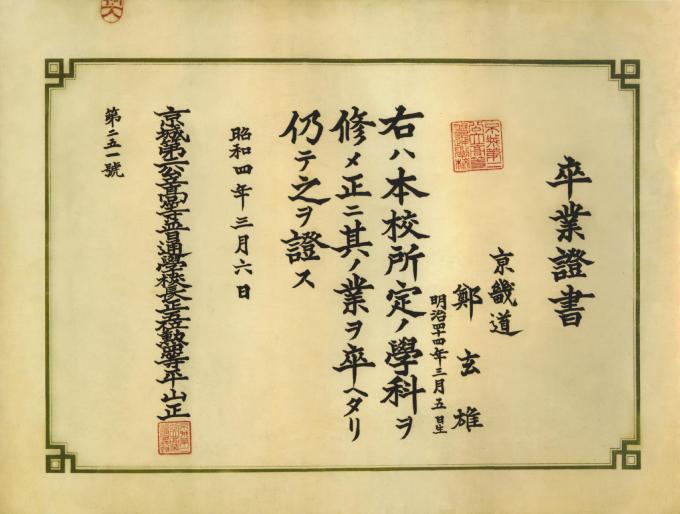 卒業證書
京畿道
鄭玄雄
明治四十四年三月五日生
右ハ本校所定ノ學科ヲ
修メ正ニ其ノ業ヲ卒ヘタリ
仍テ之ヲ證ス
昭和四年三月六日
京城第二公立高等普通學校長 平山正
第二五一號